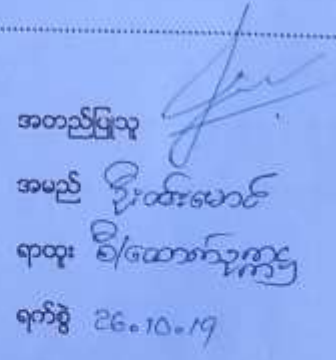 အတည်ပြုသူ
အမည် ဦးထဲးမောင်
ရာထူး စီ/ထောက်သုက္ကဋ္ဌ
ရက်စွဲ 26.10.19